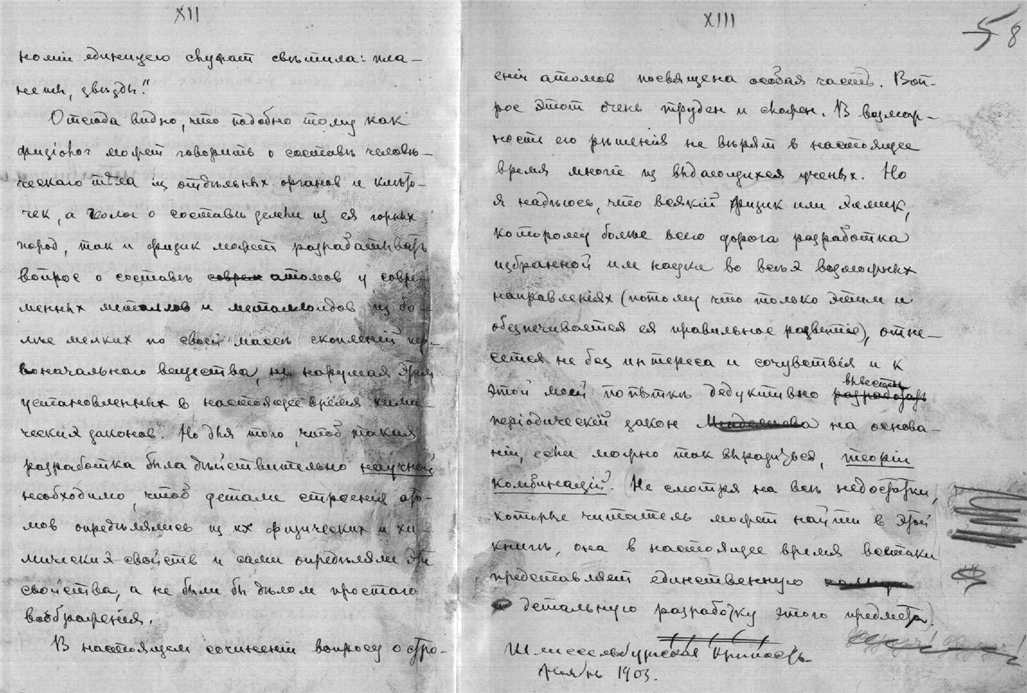 XII
номіи единицею служат свѣтила: пла-
неты, звѣзды."
Отсюда видно, что подобно тому как
физіолог может говорить о составѣ человѣ-
ческаго тѣла из отдѣльных органов и клѣто-
чек, а геолог о составѣ земли из ея горных
пород, так и физик может разрабатывать
вопрос о составѣ соврем атомов у совре-
менных металлов и металлоидов из бо-
лѣе мелких по своей массѣ скопленій пер-
воначальнаго вещества, не нарушая этим
установленных в настоящее время хими-
ческих законов. Но для того, чтоб такая
разработка была дѣйствительно научной
необходимо, чтоб детали строенія ато-
мов опредѣлялись из их физических и хи-
мических свойств и сами опредѣляли эти
свойства, а не были бы дѣлом простого
воображенія.
В настоящем сочиненіи вопросу о стро-
XIII
58
еніи атомов посвящена особая часть. Воп-
рос этот очень труден и сложен. В возмож-
ность его рѣшенія не вѣрят в настоящее
время многіе из выдающихся ученых. Но
я надѣюсь, что всякій физик или химик,
которому болѣе всего дорога разработка
избранной им науки во всѣх возможных
направленіях (потому что только этим и
обезпечивается ея правильное развитіе), отне-
сется не без интереса и сочувствія и к
этой моей попыткѣ дедуктивно разработать
вывести
періодическій закон Менделѣева на основа-
ніи, если можно так выразиться, теоріи
комбинацій. Не смотря на всѣ недостатки,
которые читатель может найти в этой
книгѣ, она в настоящее время всетаки
представляет единственную
детальную разработку этого предмета.
Шлиссельбургская крѣпость.
Ноябрь 1903.